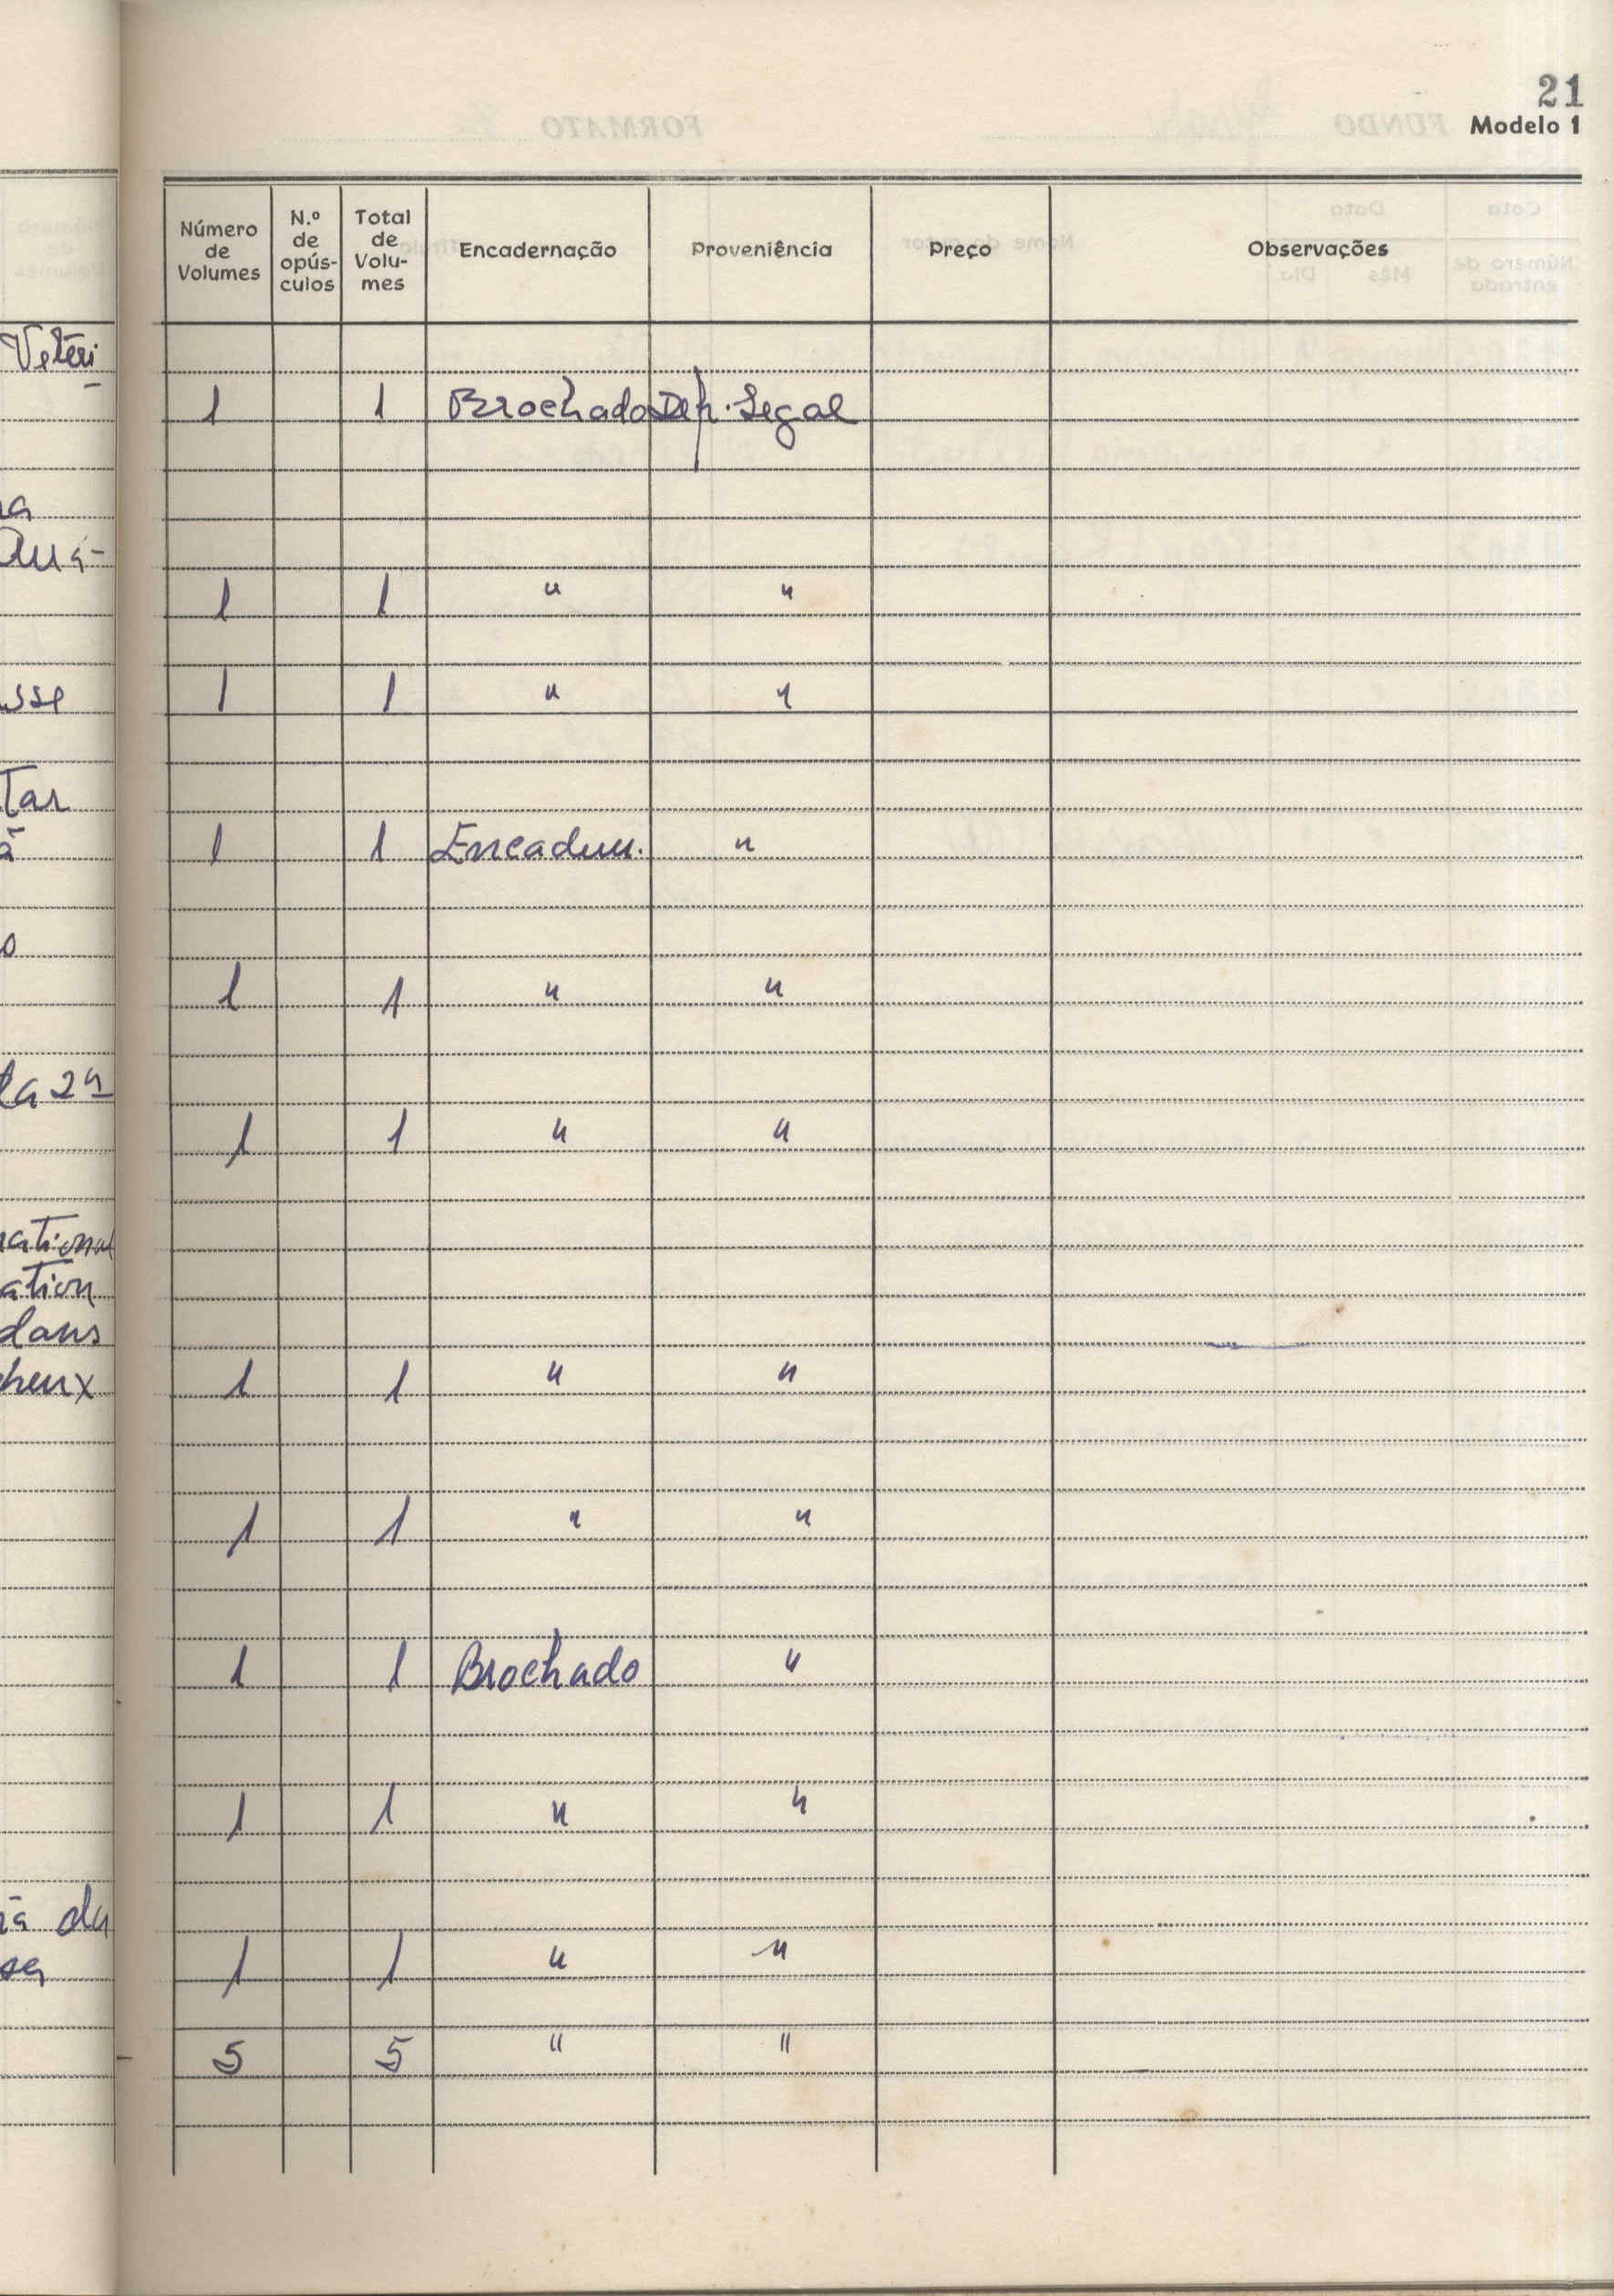 21
Modelo 1
Número de Volumes
N.º de opús- culos
Total de Volu- mes
Encadernação
Proveniência
Preço
Observações
Veteri
1 1 Brochado Dep. Legal
Qua-
1 1 " "
1 1 " "
Tar
1 1 Encadern. "
1 1 " "
la 2ª
1 1 " "
national
ation
dans
heux
1 1 " "
1 1 " "
1 1 Brochado "
1 1 " "
da
1 1 " "
5 5 " "